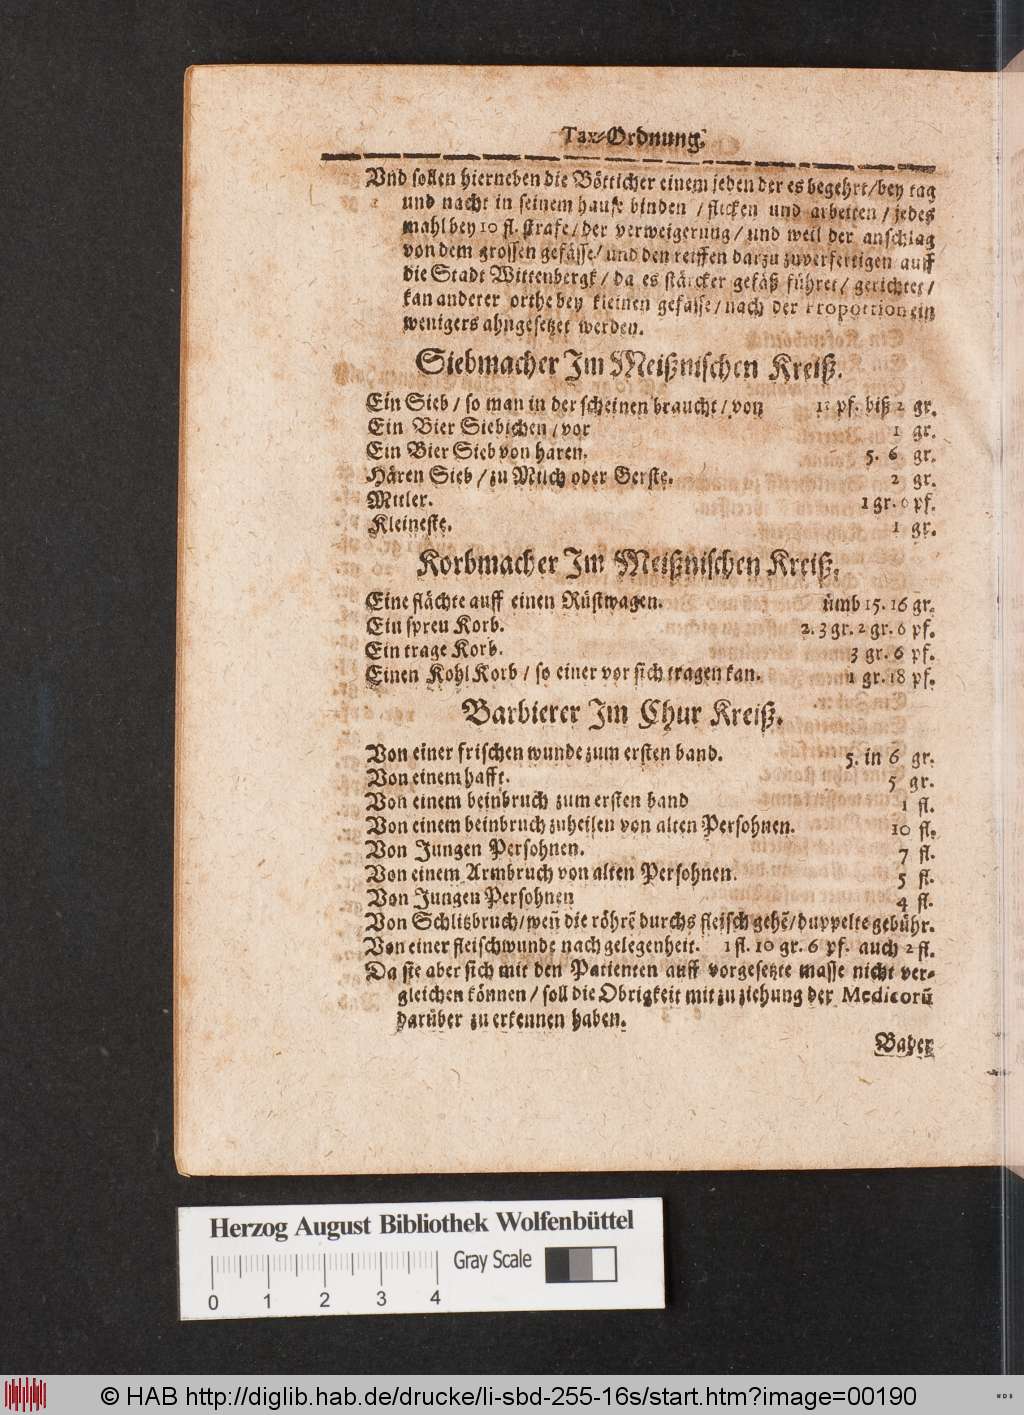 Tax-Ordnung.
Vnd sollen hierneben die Bötticher einem jeden der es begehrt/bey tag
und nacht in seinem hause binden / flicken und arbeiten / jedes
mahl bey 10 fl. strafe/ der verweigerung/ und weil der anschlag
von dem grossen gefässe/ und den reiffen darzu zuverfertigen auff
die Stadt Wittenbergk/ da es stärcker gefäß führet/ gerichtet/
kan anderer orthe bey kleinen gefässe/ nach der Proportion ein
wenigers ahngesetzet werden.
Siebmacher Im Meißnischen Kreiß.
Ein Sieb / so man in der scheinen braucht/ von pf. biß 2 gr.
Ein Bier Siebichen/ vor 1 gr.
Ein Bier Sieb von haren. 5. 6 gr.
Hären Sieb / zu Milch oder Gerste. 2 gr.
Mitler. 1 gr. 6 pf.
Kleineste. 1 gr.
Korbmacher Im Meißnischen Kreiß.
Eine flächte auff einen Rüstwagen. ümb 15. 16 gr.
Ein spreu Korb. 2. 3 gr. 2 gr. 6 pf.
Ein trage Korb. 3 gr. 6 pf.
Einen Kohl Korb / so einer vor sich tragen kan. 1 gr. 18 pf.
Barbierer Im Chur Kreiß.
Von einer frischen wunde zum ersten band. 5. in 6 gr.
Von einem hafft. 5 gr.
Von einem beinbruch zum ersten band 1 fl.
Von einem beinbruch zuheilen von alten Persohnen. 10 fl.
Von Jungen Persohnen. 7 fl.
Von einem Armbruch von alten Persohnen. 5 fl.
Von Jungen Persohnen 4 fl.
Von Schlitzbruch/ weñ die röhrẽ durchs fleisch gehẽ/ duppelte gebühr.
Von einer fleischwunde nach gelegenheit. 1 fl. 10 gr. 6 pf. auch 2 fl.
Da sie aber sich mit den Patienten auff vorgesetzte masse nicht ver-
gleichen können / soll die Obrigkeit mit zu ziehung der Medicorũ
darüber zu erkennen haben.
Bader
Herzog August Bibliothek Wolfenbüttel
Gray Scale
0 1 2 3 4
© HAB http://diglib.hab.de/drucke/li-sbd-255-16s/start.htm?image=00190
WDB